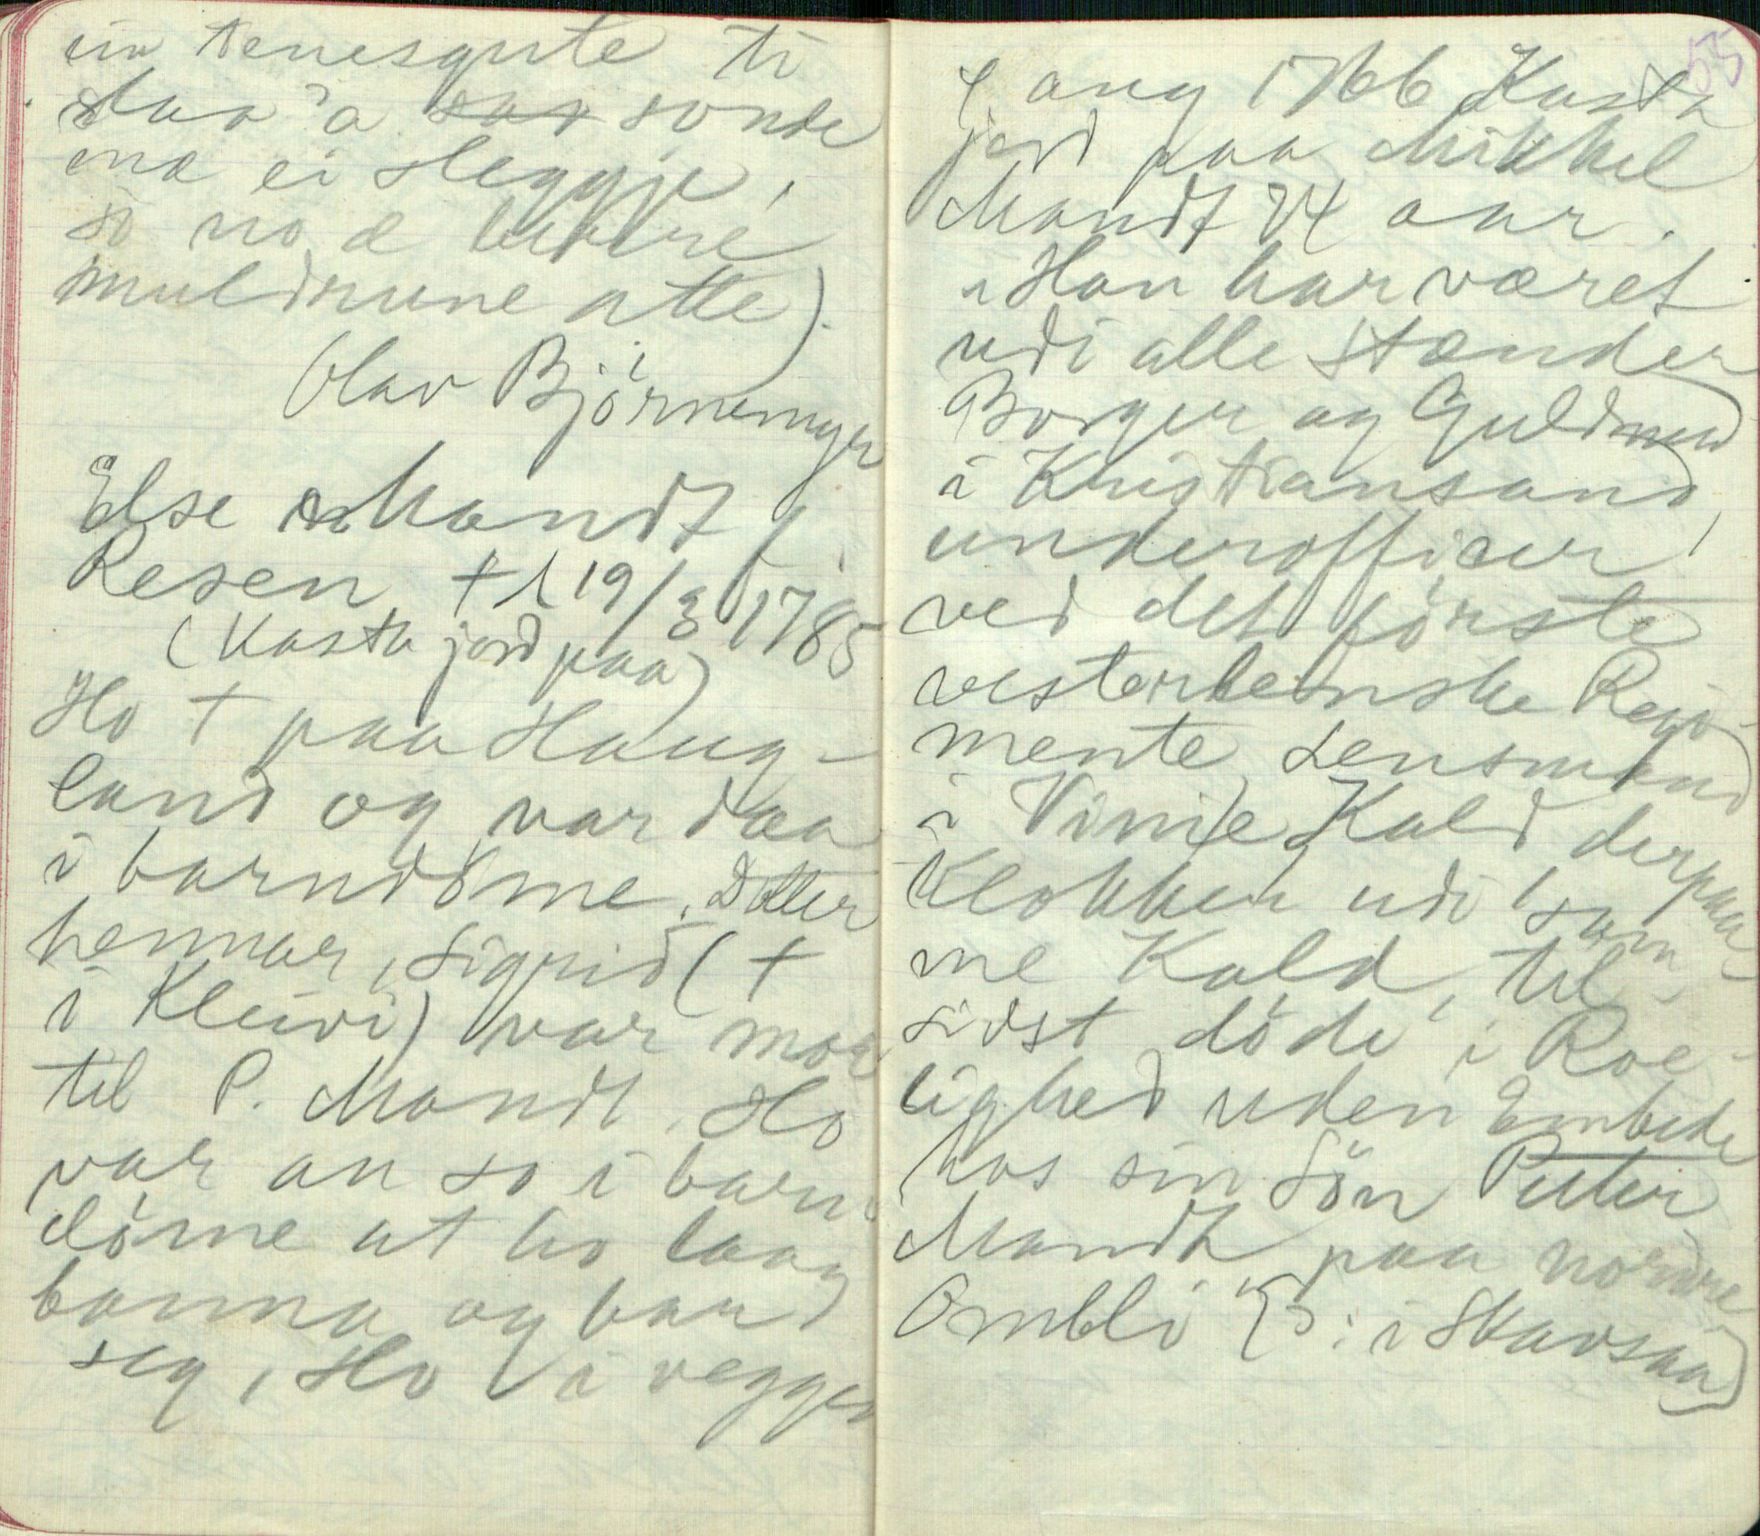 ein tenesgute ti
slaa 'a sas sonde
mæ ei sleggje,
so no æ
muldrune atte).
Olav Björnemyr
Else Mandt f.
Resen + 19/3 1785
(Kasta jord paa)
Ho + paa Haug-
land og var daa
i barndöme. Dotter
hennar, Sigrid (+
i Kleivi) var mor
til P. Mandt. Ho
var an so i barn-
döme at ho laag
banna og bar
seg, Ho i veggen
55
4 aug 1766 Kasta
jord paa Mikkel
Mandt 74 aar.
"Han har været
udi alle Stænder
Borger og Guldsmed
i Kristiansand,
underofficer
ved det förste
vesterlenske Regi-
mente, Lensmand
i Vinje Kald derpaa
Klokker udi sam-
me Kald, til-
sidst döde i Roe-
lighed uden Embede
hos sin Sön Peter
Mandt paa nordre
Ombli" (ɔ: i Skavsaa)